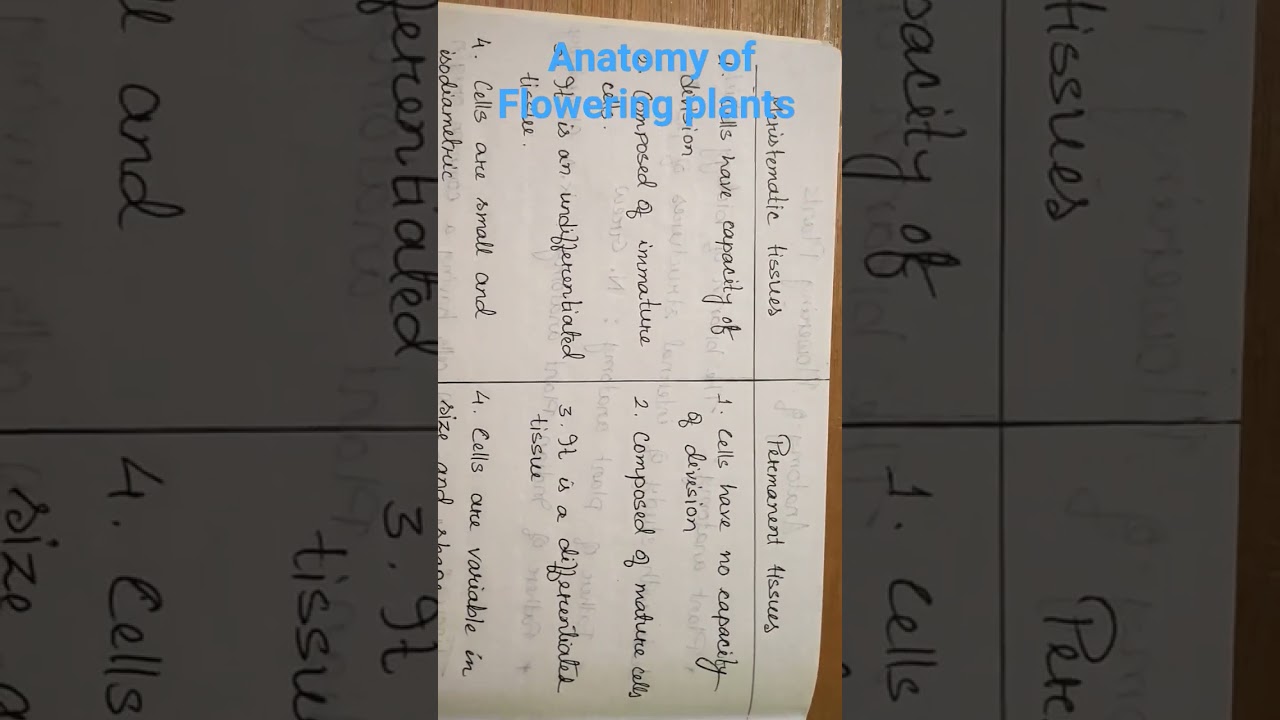 Anatomy of
Flowering plants
Meristematic tissues
1. Cells have capacity of
division
2. Composed of immature
cells.
3. It is an undifferentiated
tissue.
4. Cells are small and
isodiametric
Permanent tissues
1. Cells have no capacity
of division
2. Composed of mature cells
3. It is a differentiated
tissue
4. Cells are variable in
size and shape